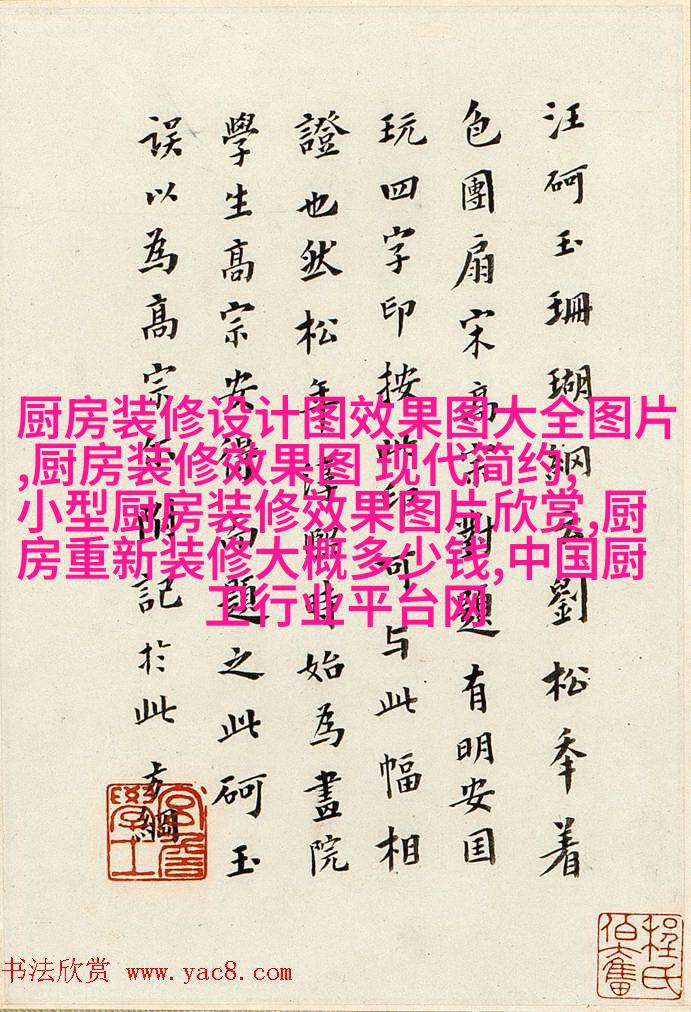 汪砢玉珊瑚網云劉松秊着
色團扇宋高宗對題有明安国
玩四字印按此印可与此幅相
證也然松年淳熙時始為畫院
學生高宗安得而題之此砢玉
誤以為高宗尔附記於此 方綱
厨房装修设计图效果图大全图片
,厨房装修效果图 现代简约,
小型厨房装修效果图片欣赏,厨
房重新装修大概多少钱,中国厨
卫行业平台网
宮詹學士
程氏伯奮
书法欣赏 www.yac8.com